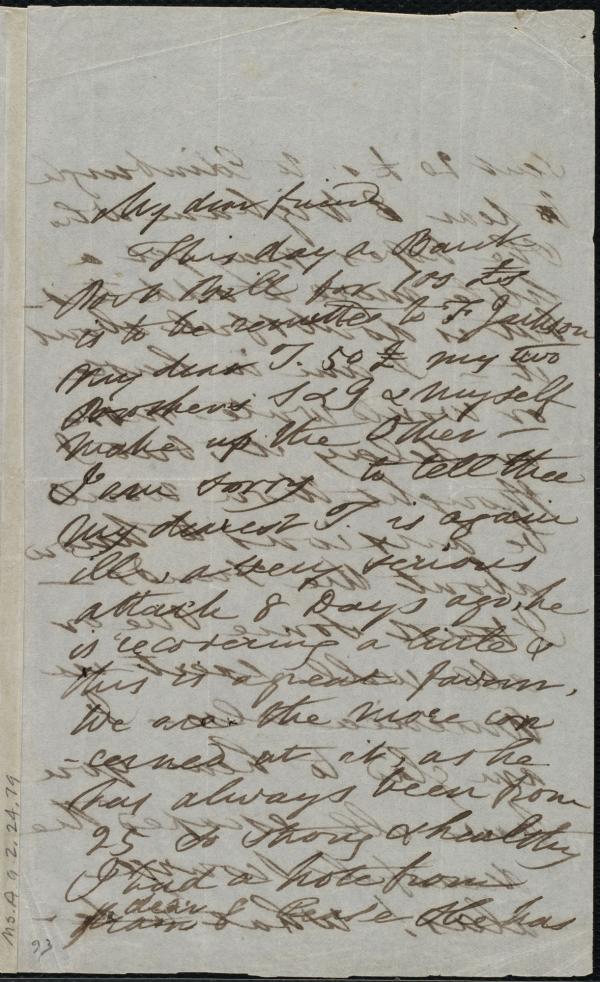 My dear friend
This day a Bank
Post Bill for 100 £s
is to be remitted to F Jackson
my dear T. 50 £ my two
Brothers S & G & myself
make up the Other —
I am sorry to tell thee
my dearest T. is again
ill, a very serious
attack 8 Days ago, he
is recovering a little &
this is a great favour,
We are the more con
-cerned at it, as he
has always been from
25 so strong & healthy
I had a note from
dear
E Pease She has
Ms. A 9.2.24.79
93